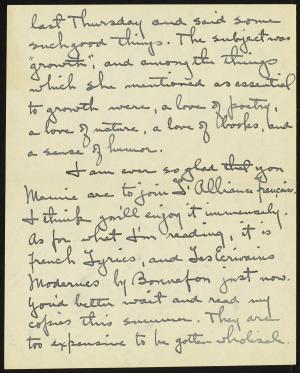 last Thursday and said some
such good things. The subject was
"growth", and among the things
which she mentioned as essential
to growth were, a love of poetry,
a love of nature, a love of books, and
a sense of humor.
I am ever so glad that you
Mamie are to join L'Alliance française.
I think you'll enjoy it immensely.
As for what I'm reading, it is
French Lyrics, and Les Ecrivains
Modernes by Bonnefon just now.
You'd better wait and read my
copies this summer. They are
too expensive to be gotten wholesale.